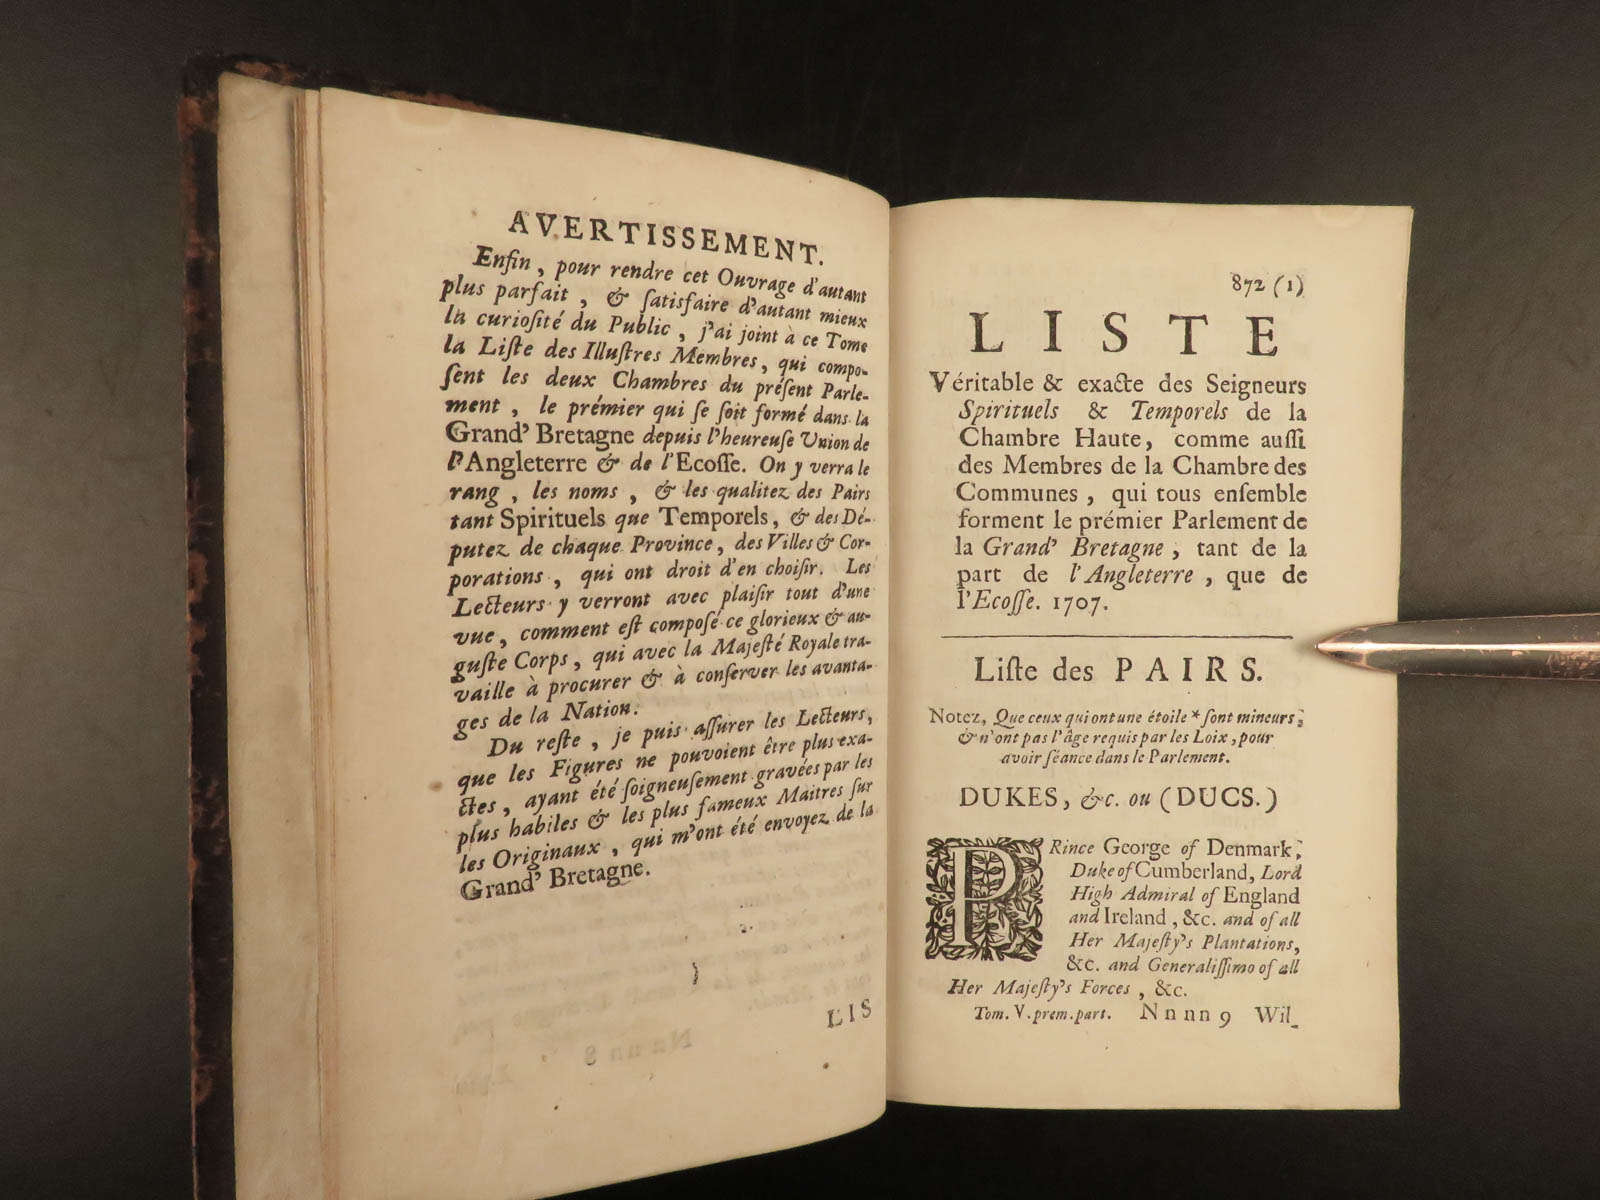 AVERTISSEMENT.
Enfin, pour rendre cet Ouvrage d'autant
plus parfait, & ſatisfaire d'autant mieux
la curioſité du Public, j'ai joint à ce Tome
la Liſte des Illuſtres Membres, qui compo-
ſent les deux Chambres du préſent Parle-
ment, le prémier qui ſe ſoit formé dans la
Grand' Bretagne depuis l'heureuſe Union de
l'Angleterre & de l'Ecoſſe. On y verra le
rang, les noms, & les qualitez des Pairs
tant Spirituels que Temporels, & des Dé-
putez de chaque Province, des Villes & Cor-
porations, qui ont droit d'en choiſir. Les
Lecteurs y verront avec plaiſir tout d'une
vue, comment eſt compoſé ce glorieux & au-
guſte Corps, qui avec la Majeſté Royale tra-
vaille à procurer & à conſerver les avanta-
ges de la Nation.
Du reſte, je puis aſſurer les Lecteurs,
que les Figures ne pouvoient être plus exa-
ctes, ayant été ſoigneuſement gravées par les
plus habiles & les plus fameux Maitres ſur
les Originaux, qui m'ont été envoyez de la
Grand' Bretagne.
LIS
872 (1)
LISTE
Véritable & exacte des Seigneurs
Spirituels & Temporels de la
Chambre Haute, comme auſſi
des Membres de la Chambre des
Communes, qui tous enſemble
forment le prémier Parlement de
la Grand' Bretagne, tant de la
part de l'Angleterre, que de
l'Ecoſſe. 1707.
Liſte des PAIRS.
Notez, Que ceux qui ont une étoile * ſont mineurs;
& n'ont pas l'âge requis par les Loix, pour
avoir ſéance dans le Parlement.
DUKES, &c. ou (DUCS.)
PRince George of Denmark;
Duke of Cumberland, Lord
High Admiral of England
and Ireland, &c. and of all
Her Majeſty's Plantations,
&c. and Generaliſſimo of all
Her Majeſty's Forces, &c.
Tom. V. prem. part. Nnnn 9 Wil-